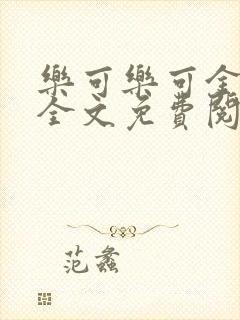 樂可樂可全
全文免費閱
范蠡